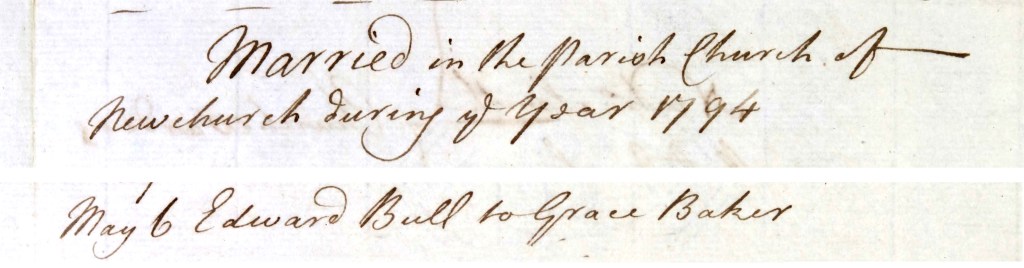 Married in the Parish Church of
Newchurch during ye Year 1794
May 6 Edward Bull to Grace Baker